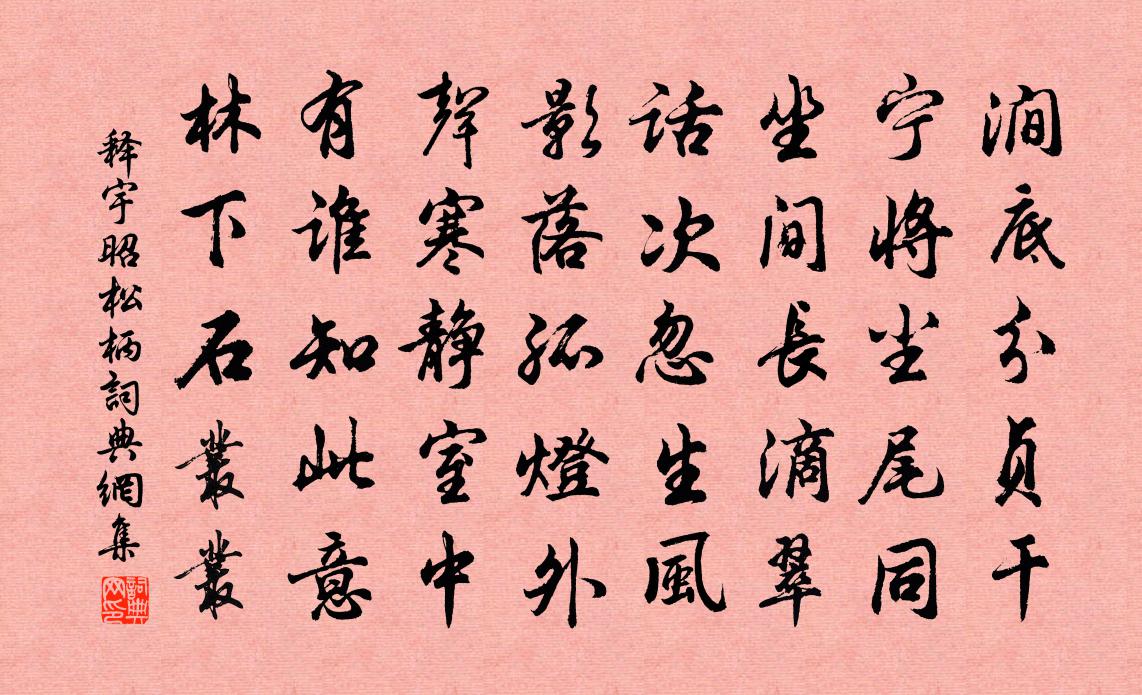 澗底分貞干
宁將尘尾同
坐間長滴翠
話次忽生風
影落孤燈外
聲寒靜室中
有誰知此意
林下石叢叢
释宇昭松柄詞典網集
詞典網印